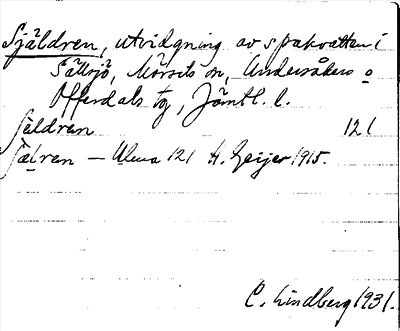 Själdren, utvidgning av spakvatten i
Sällsjö, Mörsils sn, Undersåkers o
Offerdals tg, Jämtl. l.
121
Sælren — Ulma 121 H. Geijer 1915.
C. Lindberg 1931.